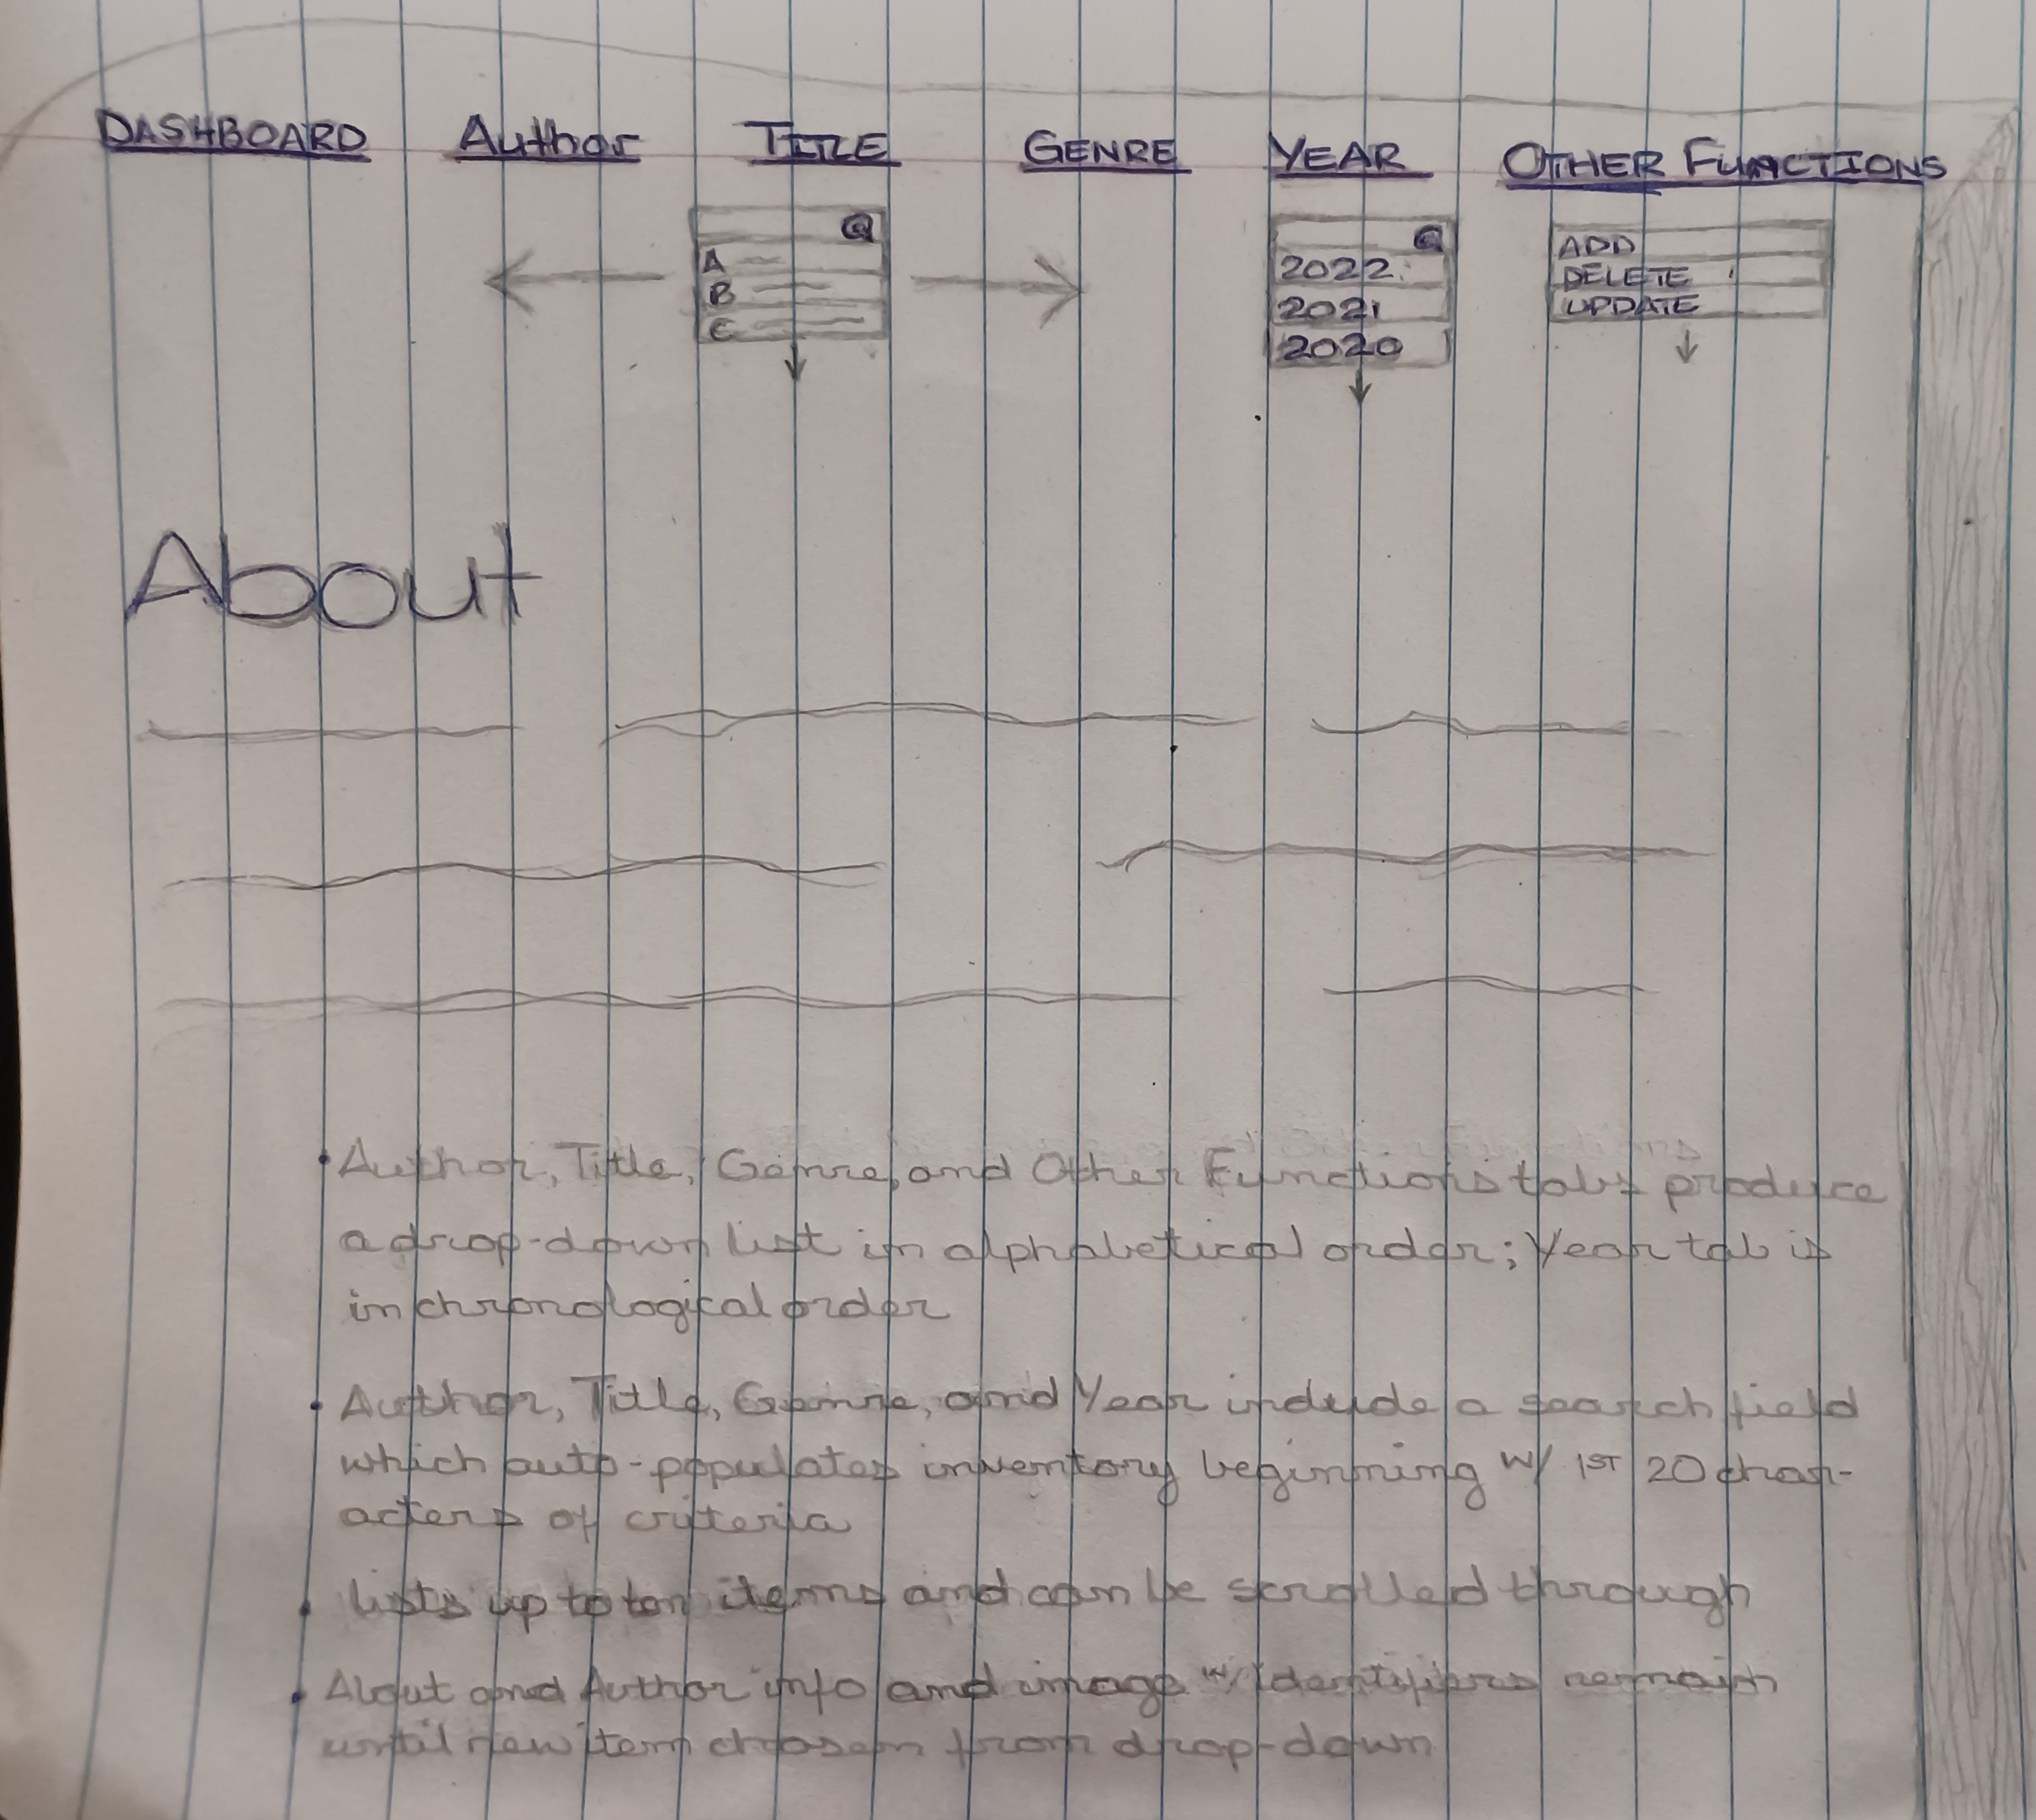 DASHBOARD Author TITLE GENRE YEAR OTHER FUNCTIONS
A
B
C
2022
2021
2020
ADD
DELETE
UPDATE
About
• Author, Title, Genre, and Other Functions tabs produce
a drop-down list in alphabetical order; Year tab is
in chronological order
• Author, Title, Genre, and Year include a search field
which auto-populates inventory beginning w/ 1ST 20 char-
acters of criteria
• Lists up to ten items and can be scrolled through
• About and Author info and image w/ Identifiers remain
until new item chosen from drop-down